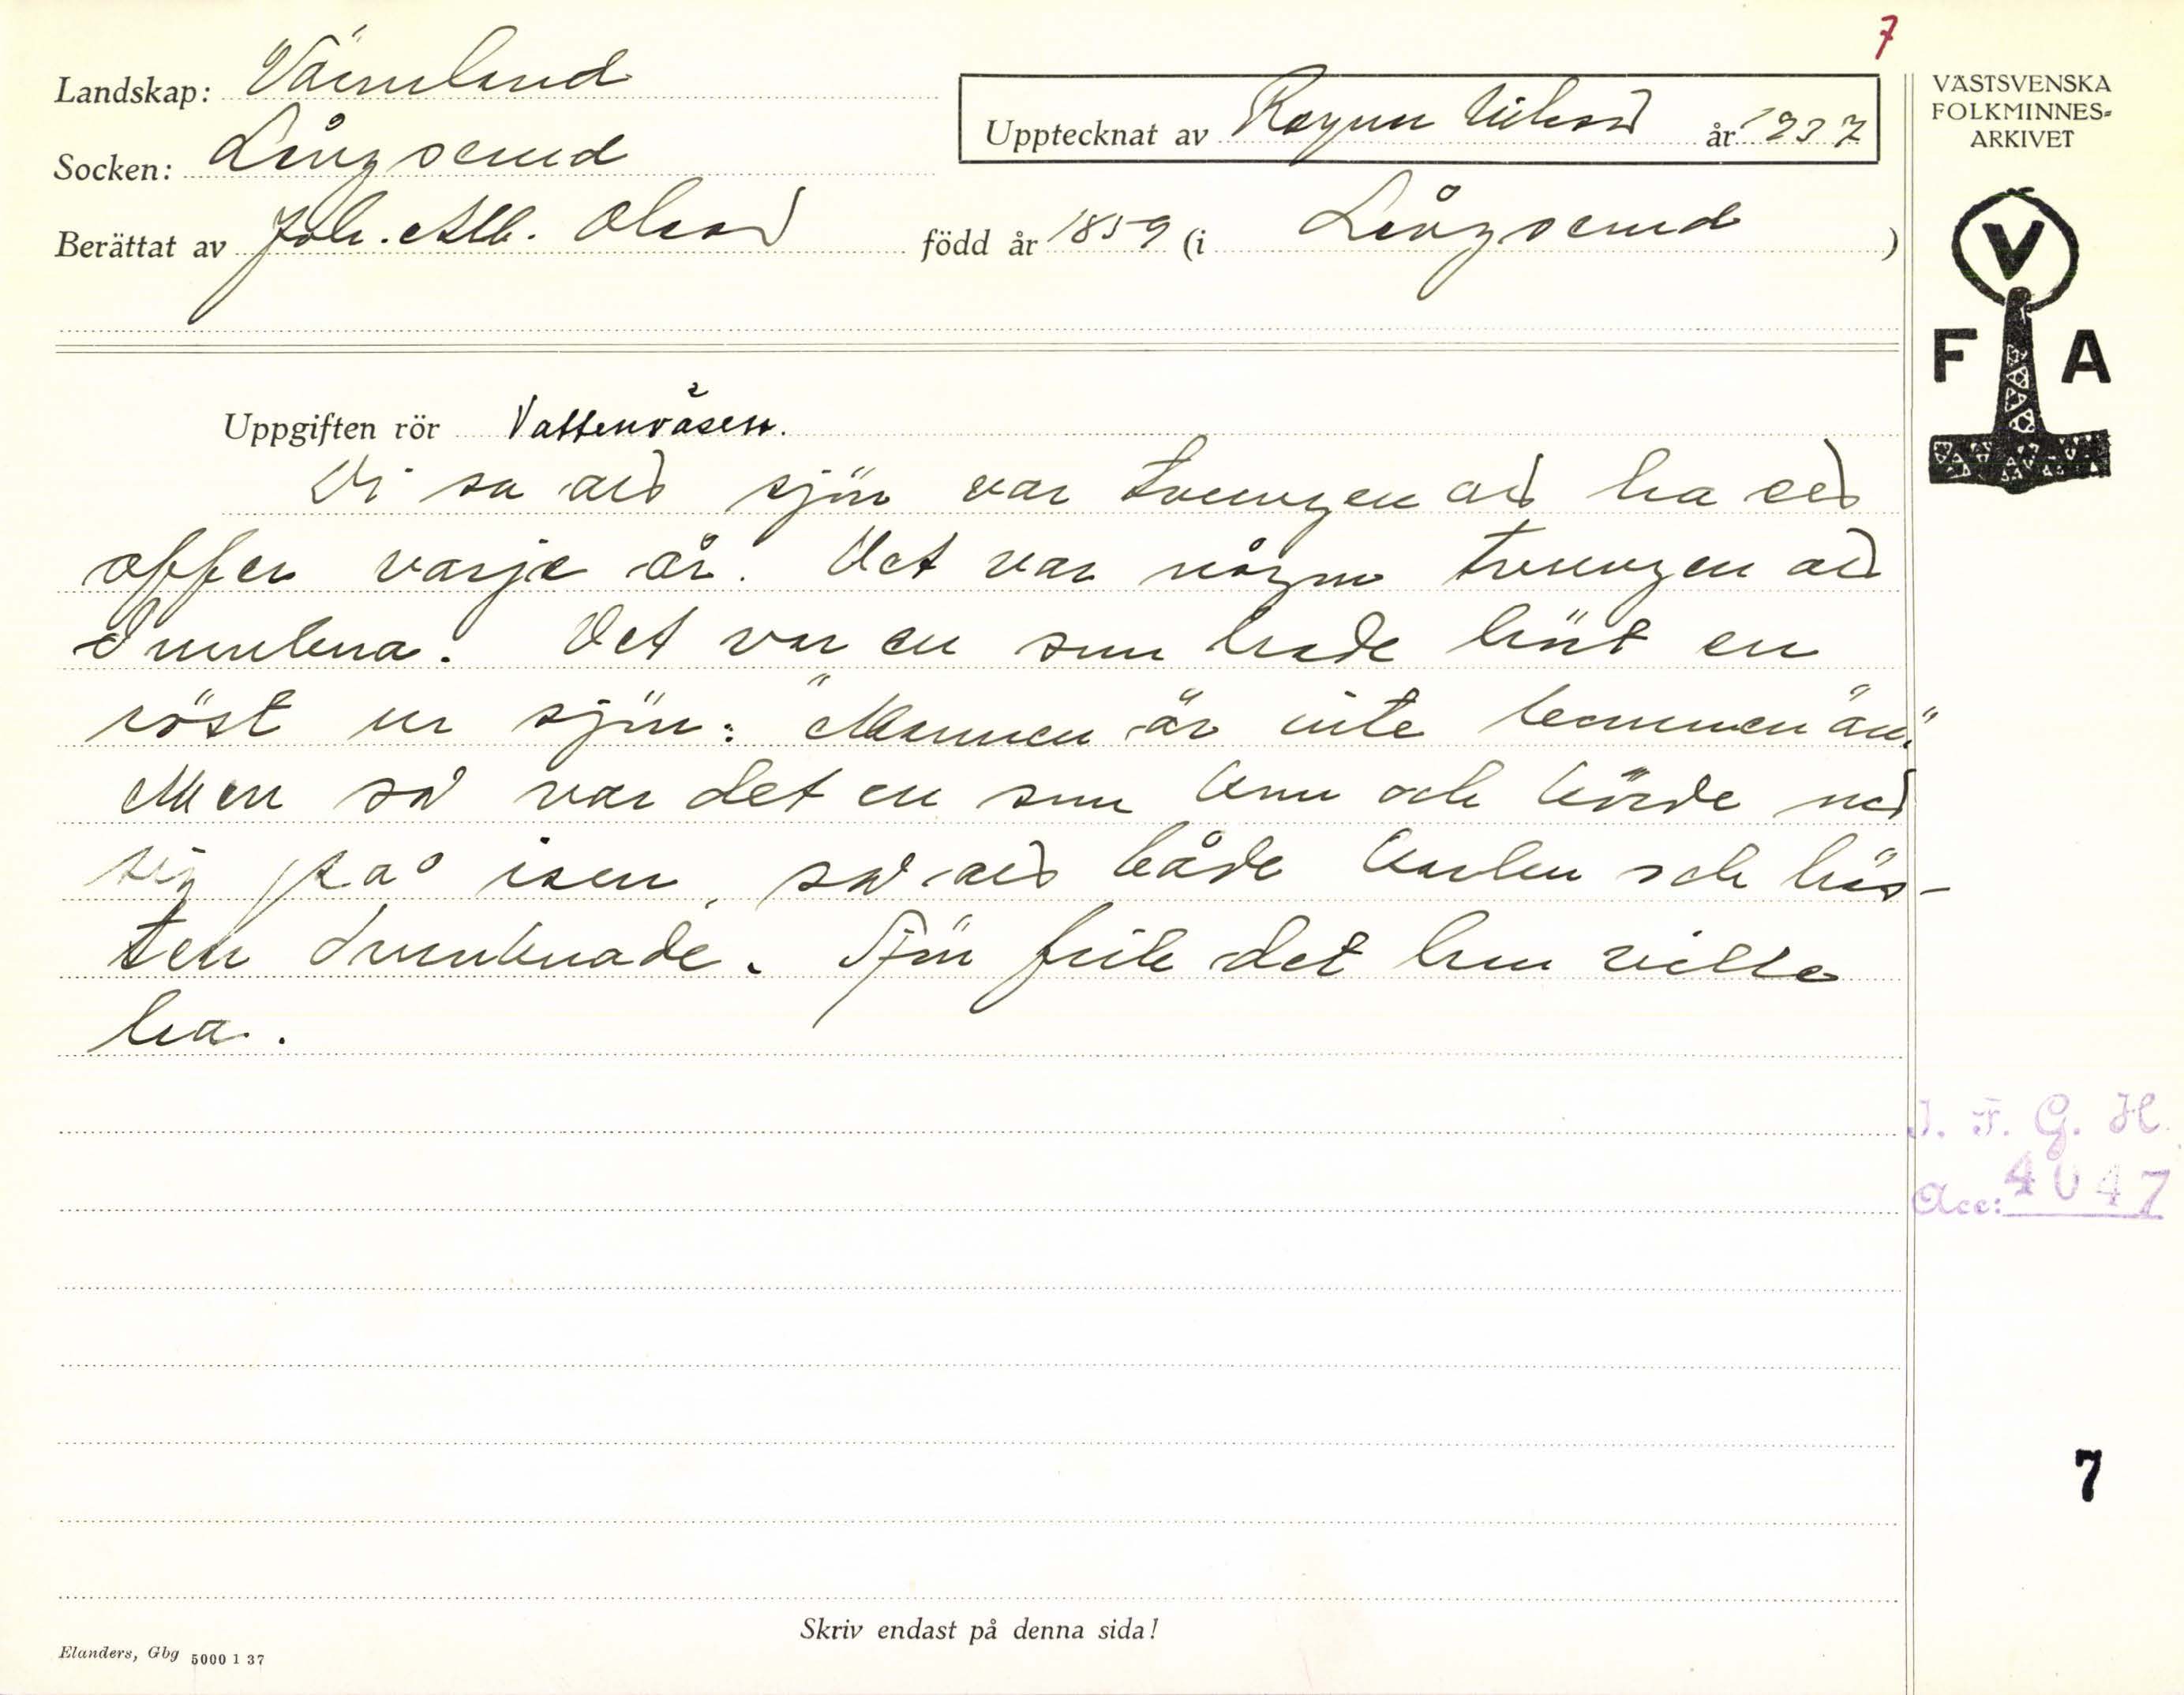 7
Landskap: Värmland
Upptecknat av Ragnar Nilsson år 1937
Socken: Långserud
Berättat av Joh. Alb. Olsson född år 1859 (i Långserud)
VÄSTSVENSKA
FOLKMINNES-
ARKIVET
V
F A
Uppgiften rör Vattenväsen.
Vi sa att sjön var tvungen att ha ett
offer varje år. Det var någon tvungen att
drunkna. Det var en som hade hört en
röst ur sjön: "Mannen är inte kommen än."
Men så var det en som kom och körde ned
sig på isen, så att både karlen och häs-
ten drunknade. Sjön fick det hon ville
ha.
I. F. G. H.
Acc: 4047
7
Skriv endast på denna sida!
Elanders, Gbg 5000 1 37